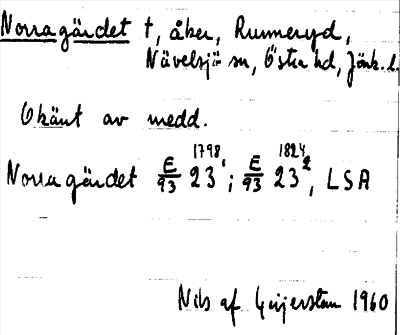 Norragärdet t, åker, Runneryd,
Nävelsjö sn, Östra hd, Jönk. l.
Okänt av medd.
Norra gärdet E/93 23 1798 1; E/93 23 1824 2, LSA
Nils af Geijerstam 1960